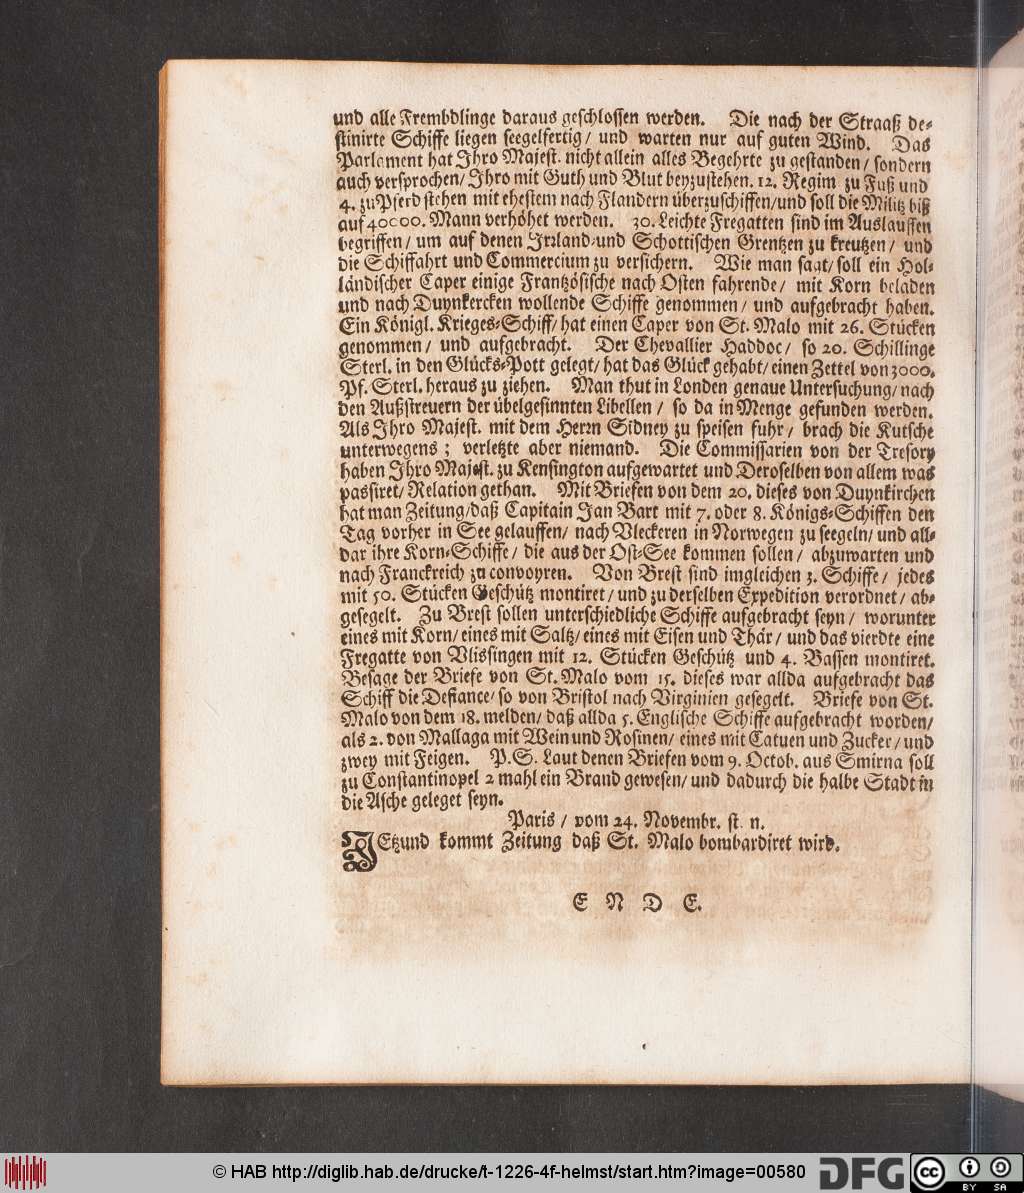 und alle Frembdlinge daraus geschlossen werden. Die nach der Straaß de-
stinirte Schiffe liegen seegelfertig / und warten nur auf guten Wind. Das
Parlement hat Ihro Majest. nicht allein alles Begehrte zu gestanden / sondern
auch versprochen / Ihro mit Guth und Blut beyzustehen. 12. Regim zu Fuß und
4. zu Pferd stehen mit ehestem nach Flandern überzuschiffen / und soll die Militz biß
auf 40000. Mann verhöhet werden. 30. Leichte Fregatten sind im Auslauffen
begriffen / um auf denen Irrland-und Schottischen Grentzen zu kreutzen / und
die Schiffahrt und Commercium zu versichern. Wie man sagt / soll ein Hol-
ländischer Caper einige Frantzösische nach Osten fahrende / mit Korn beladen
und nach Duynkercken wollende Schiffe genommen / und aufgebracht haben.
Ein Königl. Krieges-Schiff / hat einen Caper von St. Malo mit 26. Stücken
genommen / und aufgebracht. Der Chevallier Haddoc / so 20. Schillinge
Sterl. in den Glücks-Pott gelegt / hat das Glück gehabt / einen Zettel von 3000.
Pf. Sterl. heraus zu ziehen. Man thut in Londen genaue Untersuchung / nach
den Außstreuern der übelgesinnten Libellen / so da in Menge gefunden werden.
Als Ihro Majest. mit dem Herrn Sidney zu speisen fuhr / brach die Kutsche
unterwegens ; verletzte aber niemand. Die Commissarien von der Tresory
haben Ihro Majest. zu Kensington aufgewartet und Deroselben von allem was
passiret / Relation gethan. Mit Briefen von dem 20. dieses von Duynkirchen
hat man Zeitung / daß Capitain Jan Bart mit 7. oder 8. Königs-Schiffen den
Tag vorher in See gelauffen / nach Vleckeren in Norwegen zu seegeln / und all-
dar ihre Korn-Schiffe / die aus der Ost-See kommen sollen / abzuwarten und
nach Franckreich zu convoyren. Von Brest sind imgleichen 3. Schiffe / jedes
mit 50. Stücken Geschütz montiret / und zu derselben Expedition verordnet / ab-
gesegelt. Zu Brest sollen unterschiedliche Schiffe aufgebracht seyn / worunter
eines mit Korn / eines mit Saltz / eines mit Eisen und Thär / und das vierdte eine
Fregatte von Vlissingen mit 12. Stücken Geschütz und 4. Bassen montiret.
Besage der Briefe von St. Malo vom 15. dieses war allda aufgebracht das
Schiff die Defiance / so von Bristol nach Virginien gesegelt. Briefe von St.
Malo von dem 18. melden / daß allda 5. Englische Schiffe aufgebracht worden /
als 2. von Mallaga mit Wein und Rosinen / eines mit Catuen und Zucker / und
zwey mit Feigen. P.S. Laut denen Briefen vom 9. Octob. aus Smirna soll
zu Constantinopel 2 mahl ein Brand gewesen / und dadurch die halbe Stadt in
die Asche geleget seyn.
Paris / vom 24. Novembr. st. n.
JEtzund kommt Zeitung daß St. Malo bombardiret wird.
E N D E.
© HAB http://diglib.hab.de/drucke/t-1226-4f-helmst/start.htm?image=00580 DFG cc BY SA